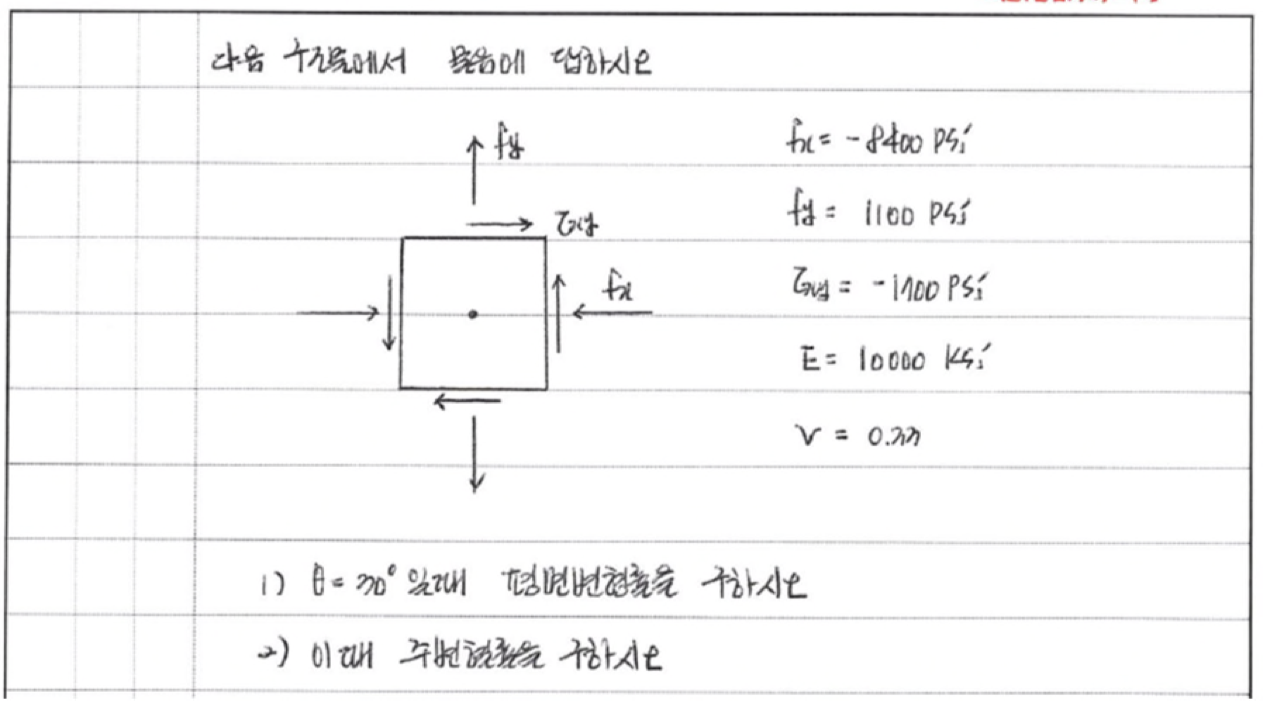 다음 구조물에서 물음에 답하시오
fy
fx = -8400 psi
τxy
fy = 1100 psi
fx
τxy = -1700 psi
E = 10000 ksi
ν = 0.33
1) θ = 30° 일때 평면변형률을 구하시오
2) 이때 주변형률을 구하시오